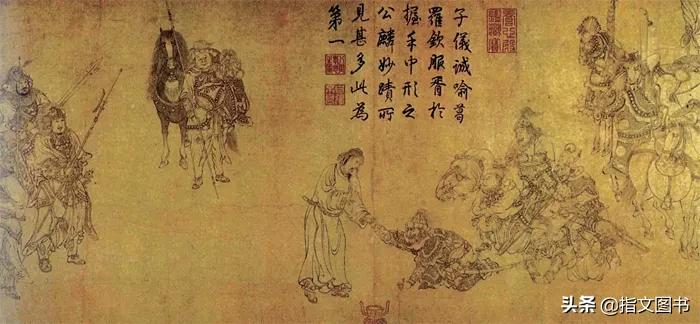 子儀誠喻葛
羅欽服胥於
握手中形之
公麟妙蹟所
見甚多此為
第一
头条 @指文图书